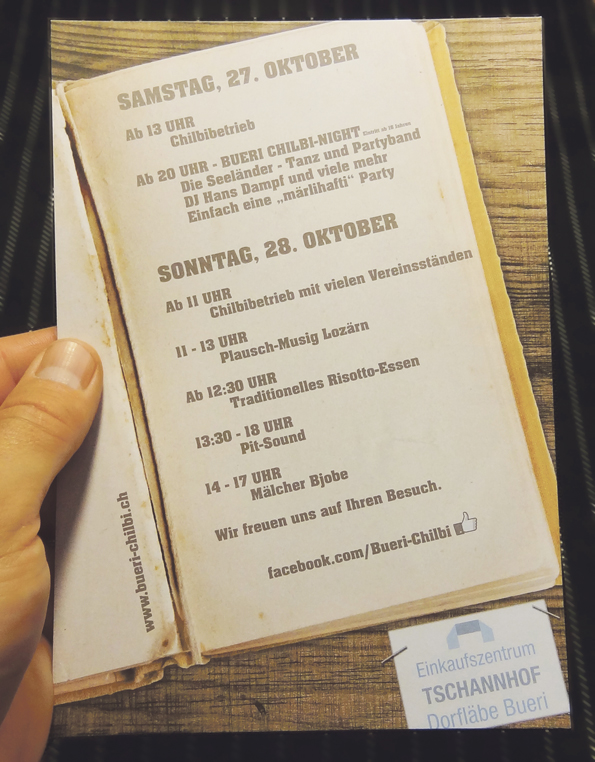 SAMSTAG, 27. OKTOBER
Ab 13 UHR
Chilbibetrieb
Ab 20 UHR - BUERI CHILBI-NIGHT Eintritt ab 16 Jahren
Die Seeländer - Tanz und Partyband
DJ Hans Dampf und viele mehr
Einfach eine „märlihafti“ Party
SONNTAG, 28. OKTOBER
Ab 11 UHR
Chilbibetrieb mit vielen Vereinsständen
11 - 13 UHR
Plausch-Musig Lozärn
Ab 12:30 UHR
Traditionelles Risotto-Essen
13:30 - 18 UHR
Pit-Sound
14 - 17 UHR
Mälcher Bjobe
Wir freuen uns auf Ihren Besuch.
facebook.com/Bueri-Chilbi
www.bueri-chilbi.ch
Einkaufszentrum
TSCHANNHOF
Dorfläbe Bueri